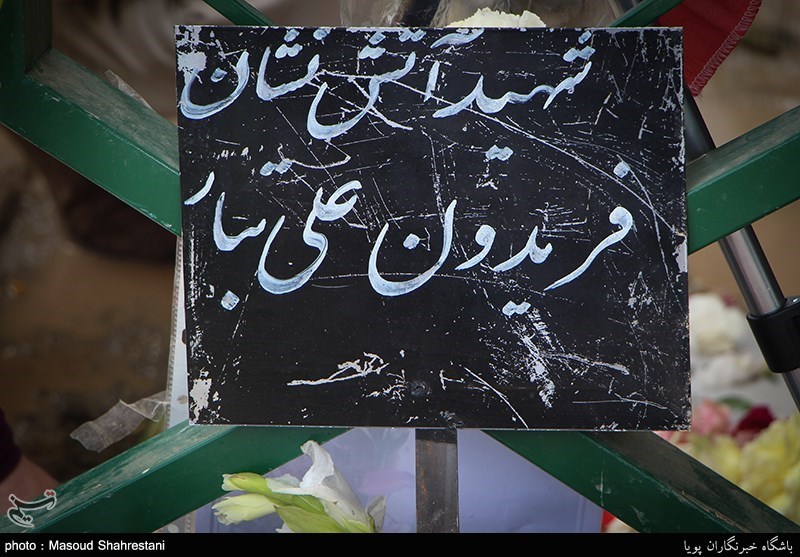 شهید آتش نشان
فریدون علی تبار
photo : Masoud Shahrestani
باشگاه خبرنگاران پویا